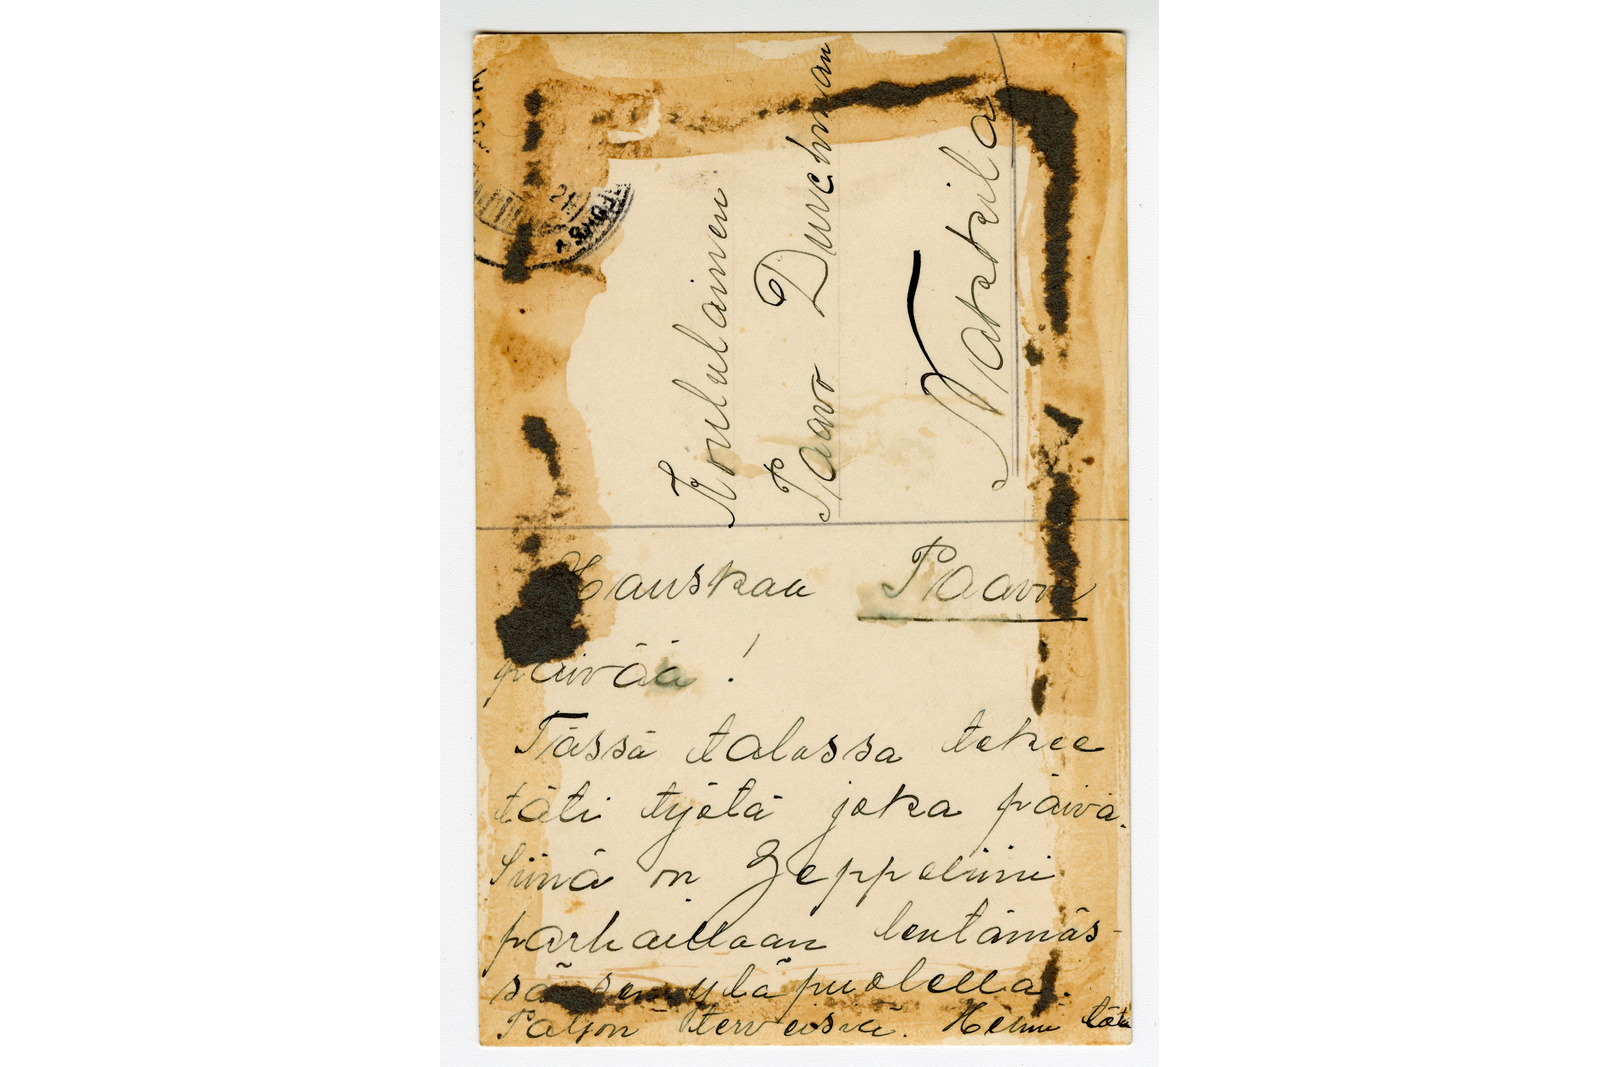 Koululainen
Paavo Durchman
Nakkila
Hauskaa Paavon
päivää!
Tässä talossa tekee
täti työtä joka päivä.
Siinä on Zeppeliini
parhaillaan lentämäs-
sä sen yläpuolella.
Paljon terveisiä. Helmi täti